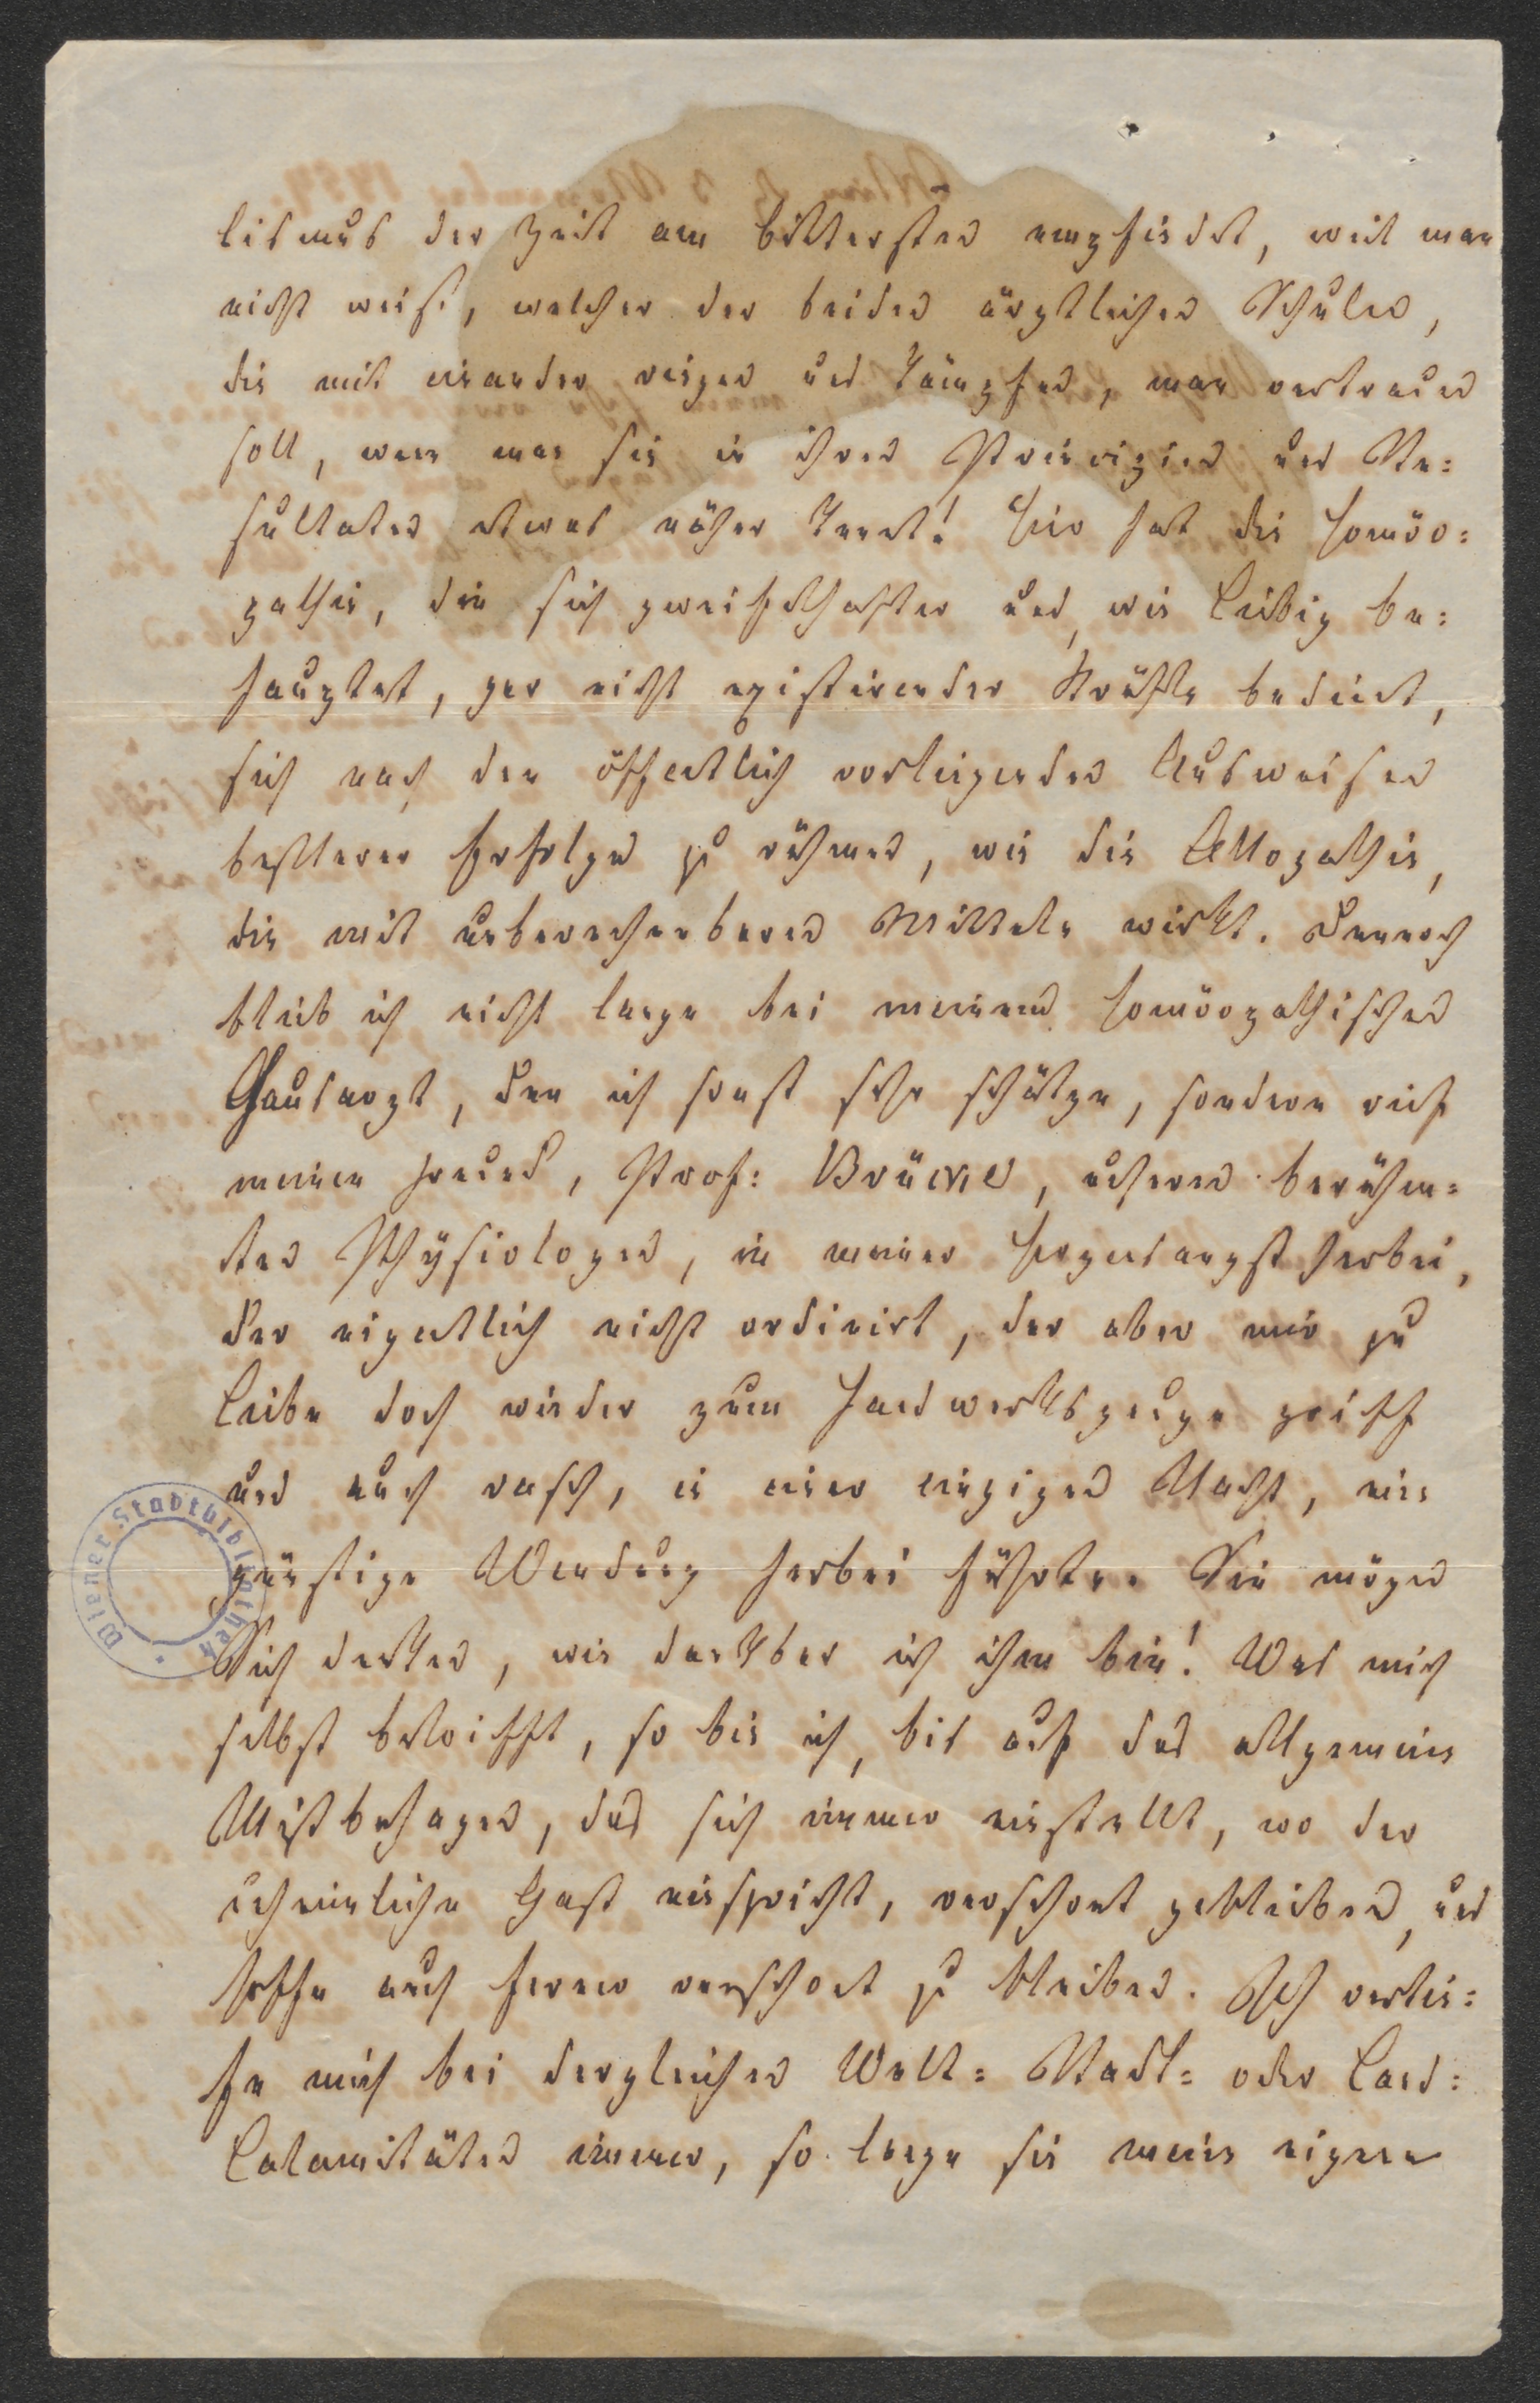 lismus der Zeit am bittersten empfindet, weil man
nicht weiß, welcher der beiden ärztlichen Schulen,
die mit einander ringen und kämpfen, man vertrauen
soll, wenn man sie in ihren Principien und Re=
sultaten etwas näher kennt! Hier hat die Homöo=
pathie, die sich zweifelhafter und, wie Liebig be=
hauptet, gar nicht existirender Kräfte bedient,
sich nach den öffentlich vorliegenden Ausweisen
besserer Erfolge zu rühmen, wie die Allopathie,
die mit unberechenbaren Mitteln wirkt. Dennoch
blieb ich nicht lange bei meinem homöopathischen
Hausarzt, den ich sonst sehr schätze, sondern rief
meinen Freund, Prof: Brücke, unseren berühm=
ten Physiologen, in meiner Herzensangst herbei,
der eigentlich nicht ordinirt, der aber mir zu
Liebe doch wieder zum Handwerkszeuge griff
und auch rasch, in einer einzigen Nacht, eine
günstige Wendung herbei führte. Sie mögen
Sich denken, wie dankbar ich ihm bin! Was mich
selbst betrifft, so bin ich, bis auf das allgemeine
Mißbehagen, das sich immer einstellt, wo der
unheimliche Gast einspricht, verschont geblieben, und
hoffe auch ferner verschont zu bleiben. Ich verhal=
te mich bei dergleichen Welt= Stadt= oder Land=
Calamitäten immer, so lange sie meine eigene
Wiener Stadtbibliothek